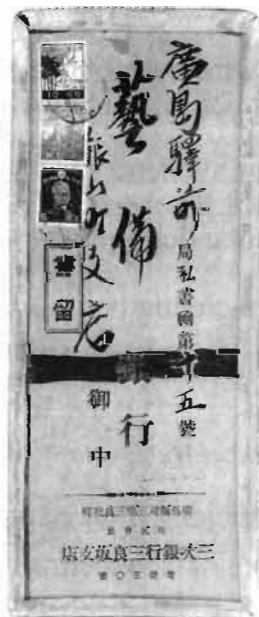 廣島驛前局私書凾第十五號
藝備銀行
銀山町支店御中
書留
三次銀行三良坂支店